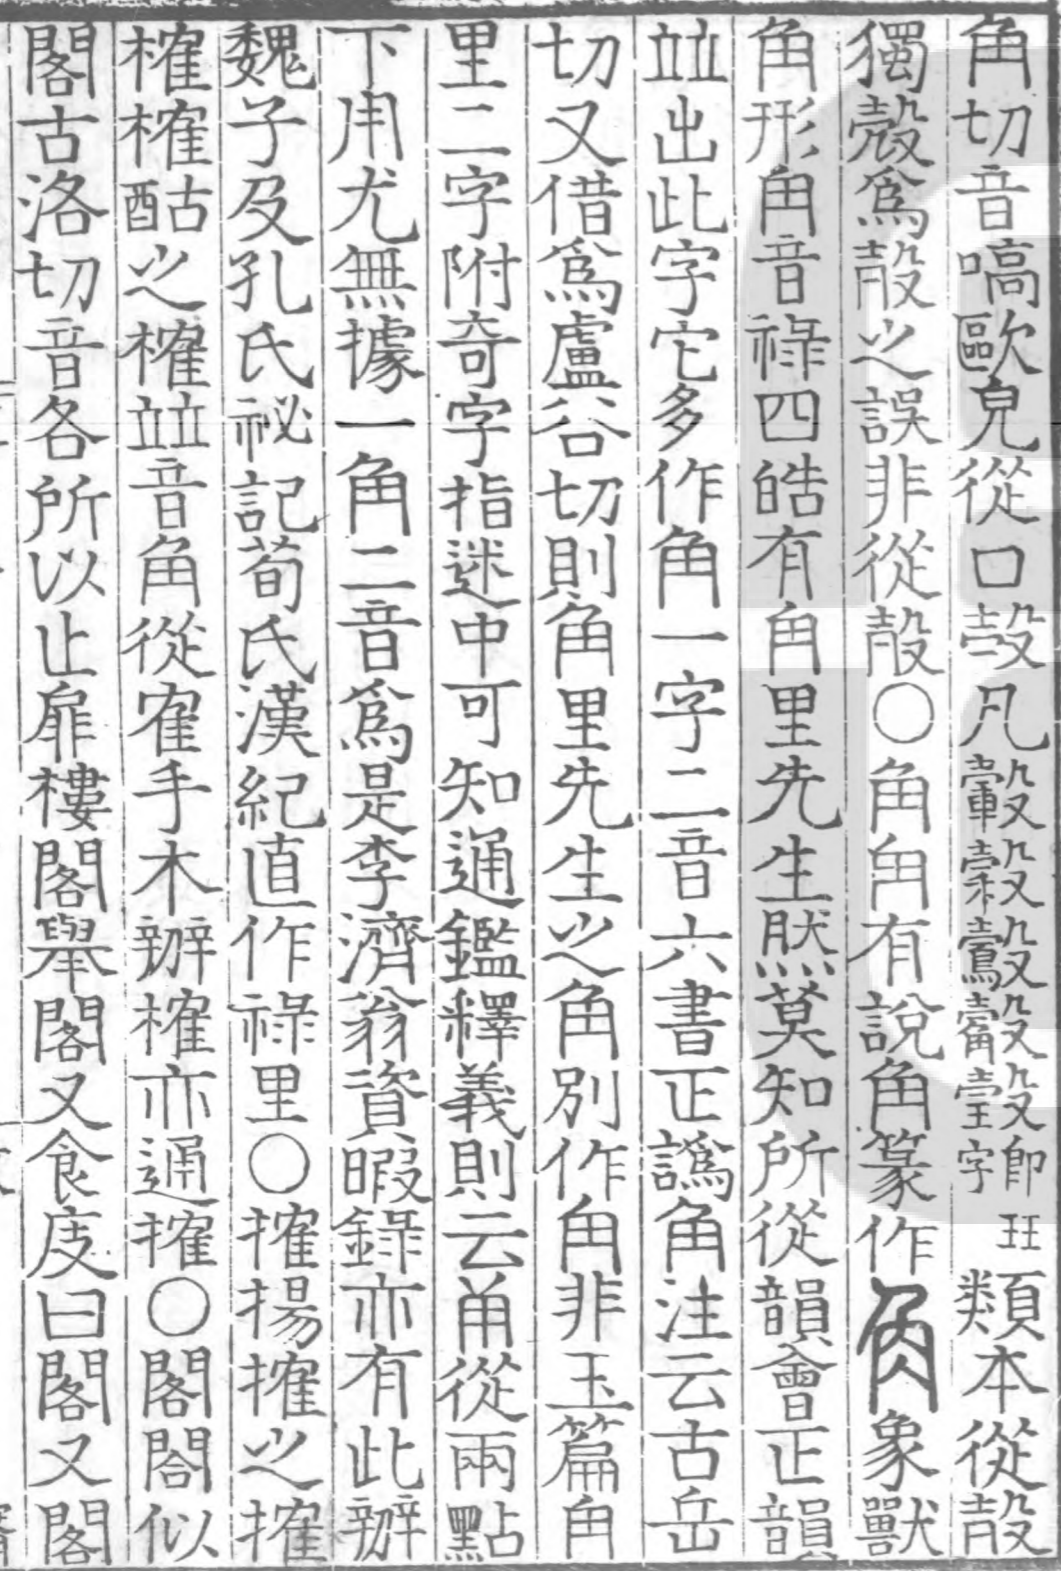 角切音嗃歐皃從口㱿凡轂穀鷇瑴字即珏類本從㱿
獨殼爲㱿之誤非從㱿〇角甪有說角篆作象獸
角形甪音祿四皓有甪里先生然莫知所從韻會正韻
竝出此字它多作角一字二音六書正譌角注云古岳
切又借爲盧谷切則角里先生之角別作甪非玉篇甪
里二字附奇字指迷中可知通鑑釋義則云甪從兩點
下用尤無據一角二音爲是李濟翁資暇錄亦有此辦
魏子及孔氏祕記荀氏漢紀直作祿里〇搉揚搉之搉
榷榷酤之榷竝音角從隺手木辦榷亦通搉〇閣閤似
閣古洛切音各所以止扉樓閣舉閣又食庋曰閣又閣